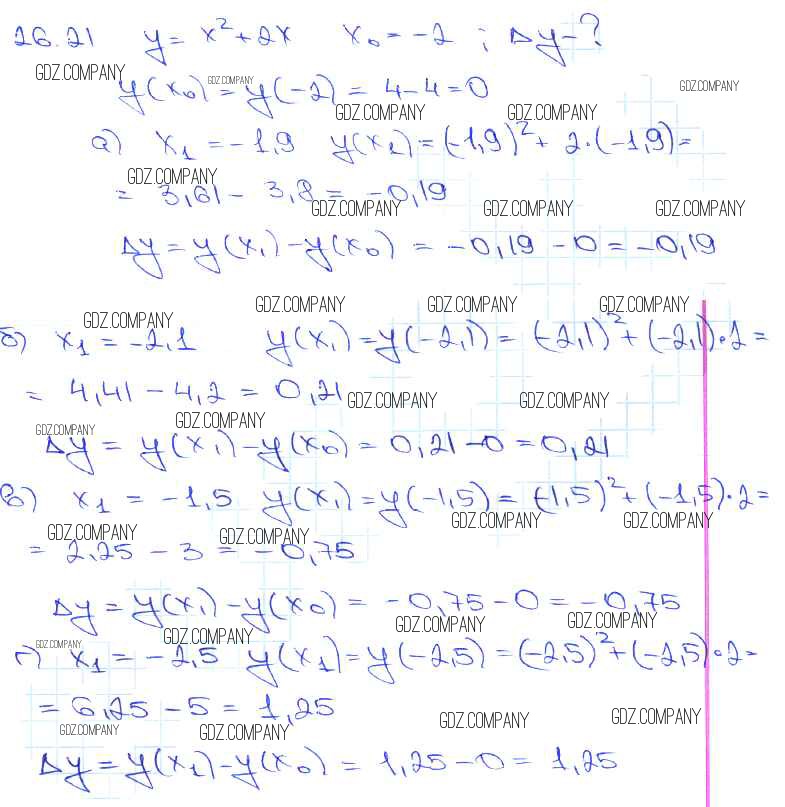 26.21 y = x² + 2x x₀ = -2 ; Δy - ?
GDZ.COMPANY GDZ.COMPANY GDZ.COMPANY
y(x₀) = y(-2) = 4 - 4 = 0
GDZ.COMPANY GDZ.COMPANY
а) x₁ = -1,9 y(x₁) = (-1,9)² + 2·(-1,9) =
GDZ.COMPANY
= 3,61 - 3,8 = -0,19
GDZ.COMPANY GDZ.COMPANY GDZ.COMPANY
Δy = y(x₁) - y(x₀) = -0,19 - 0 = -0,19
GDZ.COMPANY GDZ.COMPANY GDZ.COMPANY GDZ.COMPANY
б) x₁ = -2,1 y(x₁) = y(-2,1) = (-2,1)² + (-2,1)·2 =
= 4,41 - 4,2 = 0,21
GDZ.COMPANY GDZ.COMPANY
GDZ.COMPANY GDZ.COMPANY
Δy = y(x₁) - y(x₀) = 0,21 - 0 = 0,21
в) x₁ = -1,5 y(x₁) = y(-1,5) = (-1,5)² + (-1,5)·2 =
GDZ.COMPANY GDZ.COMPANY GDZ.COMPANY GDZ.COMPANY
= 2,25 - 3 = -0,75
Δy = y(x₁) - y(x₀) = -0,75 - 0 = -0,75
GDZ.COMPANY GDZ.COMPANY GDZ.COMPANY GDZ.COMPANY
г) x₁ = -2,5 y(x₁) = y(-2,5) = (-2,5)² + (-2,5)·2 =
= 6,25 - 5 = 1,25
GDZ.COMPANY GDZ.COMPANY GDZ.COMPANY GDZ.COMPANY
Δy = y(x₁) - y(x₀) = 1,25 - 0 = 1,25